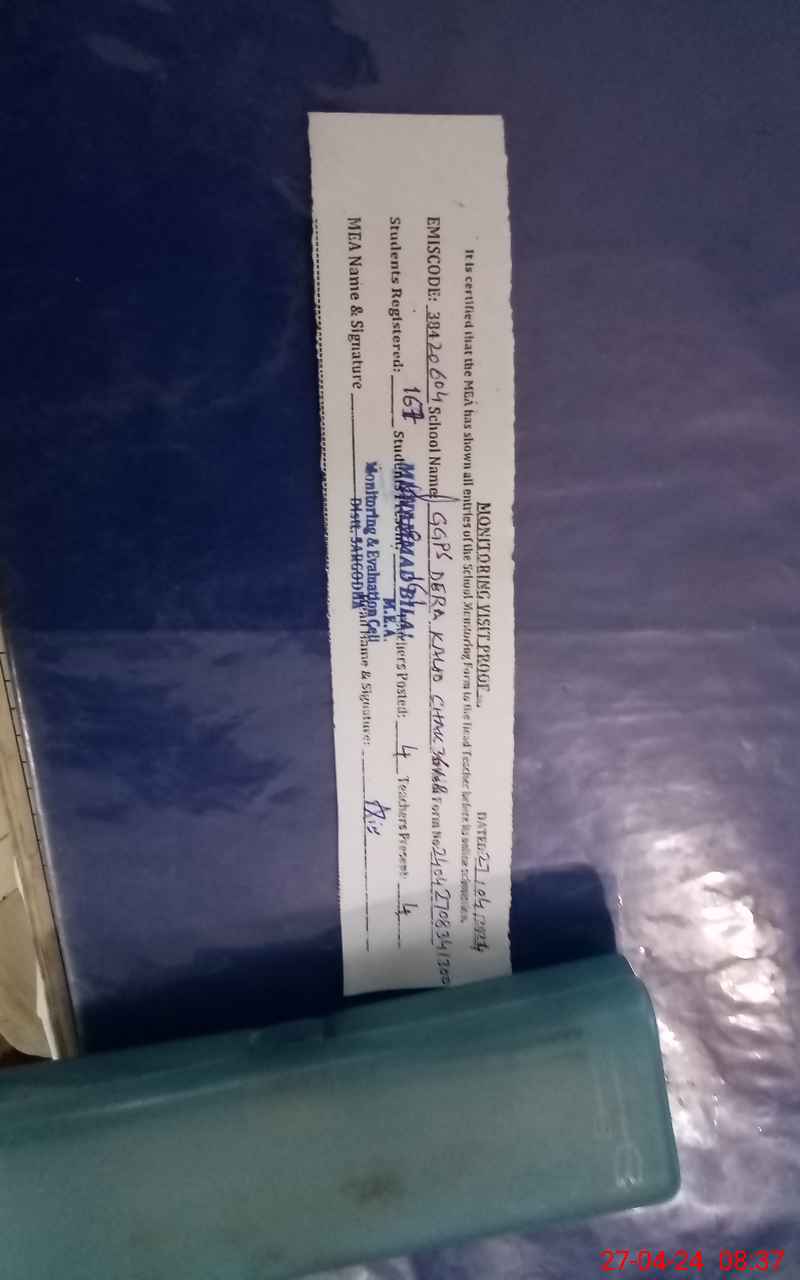 MONITORING VISIT PROOF
DATED: 27/04/2024
It is certified that the MEA has shown all entries of the School Monitoring Form to the Head Teacher before its online submission.
EMISCODE: 38420604 School Name GGPS DERA KALIO CHAK 36 Form No 24042708341300
Students Registered: 167 Students Present: Teachers Posted: 4 Teachers Present: 4
MUHAMMAD BILAL
M.E.A.
Monitoring & Evaluation Cell
Distt. SARGODHA
MEA Name & Signature Head Name & Signature:
27-04-24 08:37